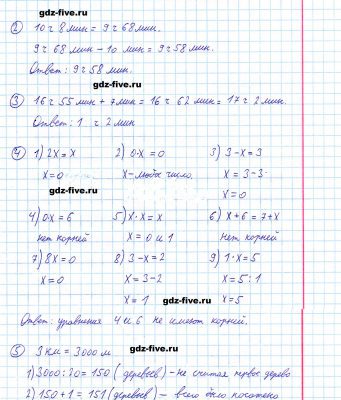 gdz-five.ru
② 10 ч 8 мин = 9 ч 68 мин.
gdz-five.ru
9 ч 68 мин - 10 мин = 9 ч 58 мин.
Ответ: 9 ч 58 мин.
gdz-five.ru
③ 16 ч 55 мин + 7 мин = 16 ч 62 мин = 17 ч 2 мин.
Ответ: 1 ч 2 мин
④ 1) 2x = x 2) 0·x = 0 3) 3-x = 3
x = 0 x - любое число. x = 3-3
gdz-five.ru
x = 0
4) 0·x = 6 5) x·x = x 6) x+6 = 7+x
нет корней x = 0 и 1 нет корней
7) 8x = 0 8) 3-x = 2 9) 1·x = 5
x = 0 x = 3-2 x = 5:1
x = 1 x = 5
gdz-five.ru
Ответ: уравнения 4 и 6 не имеют корней.
gdz-five.ru
⑤ 3 км = 3000 м
1) 3000:20 = 150 (деревьев) - не считая первое дерево
2) 150+1 = 151 (деревьев) - всего было посажено